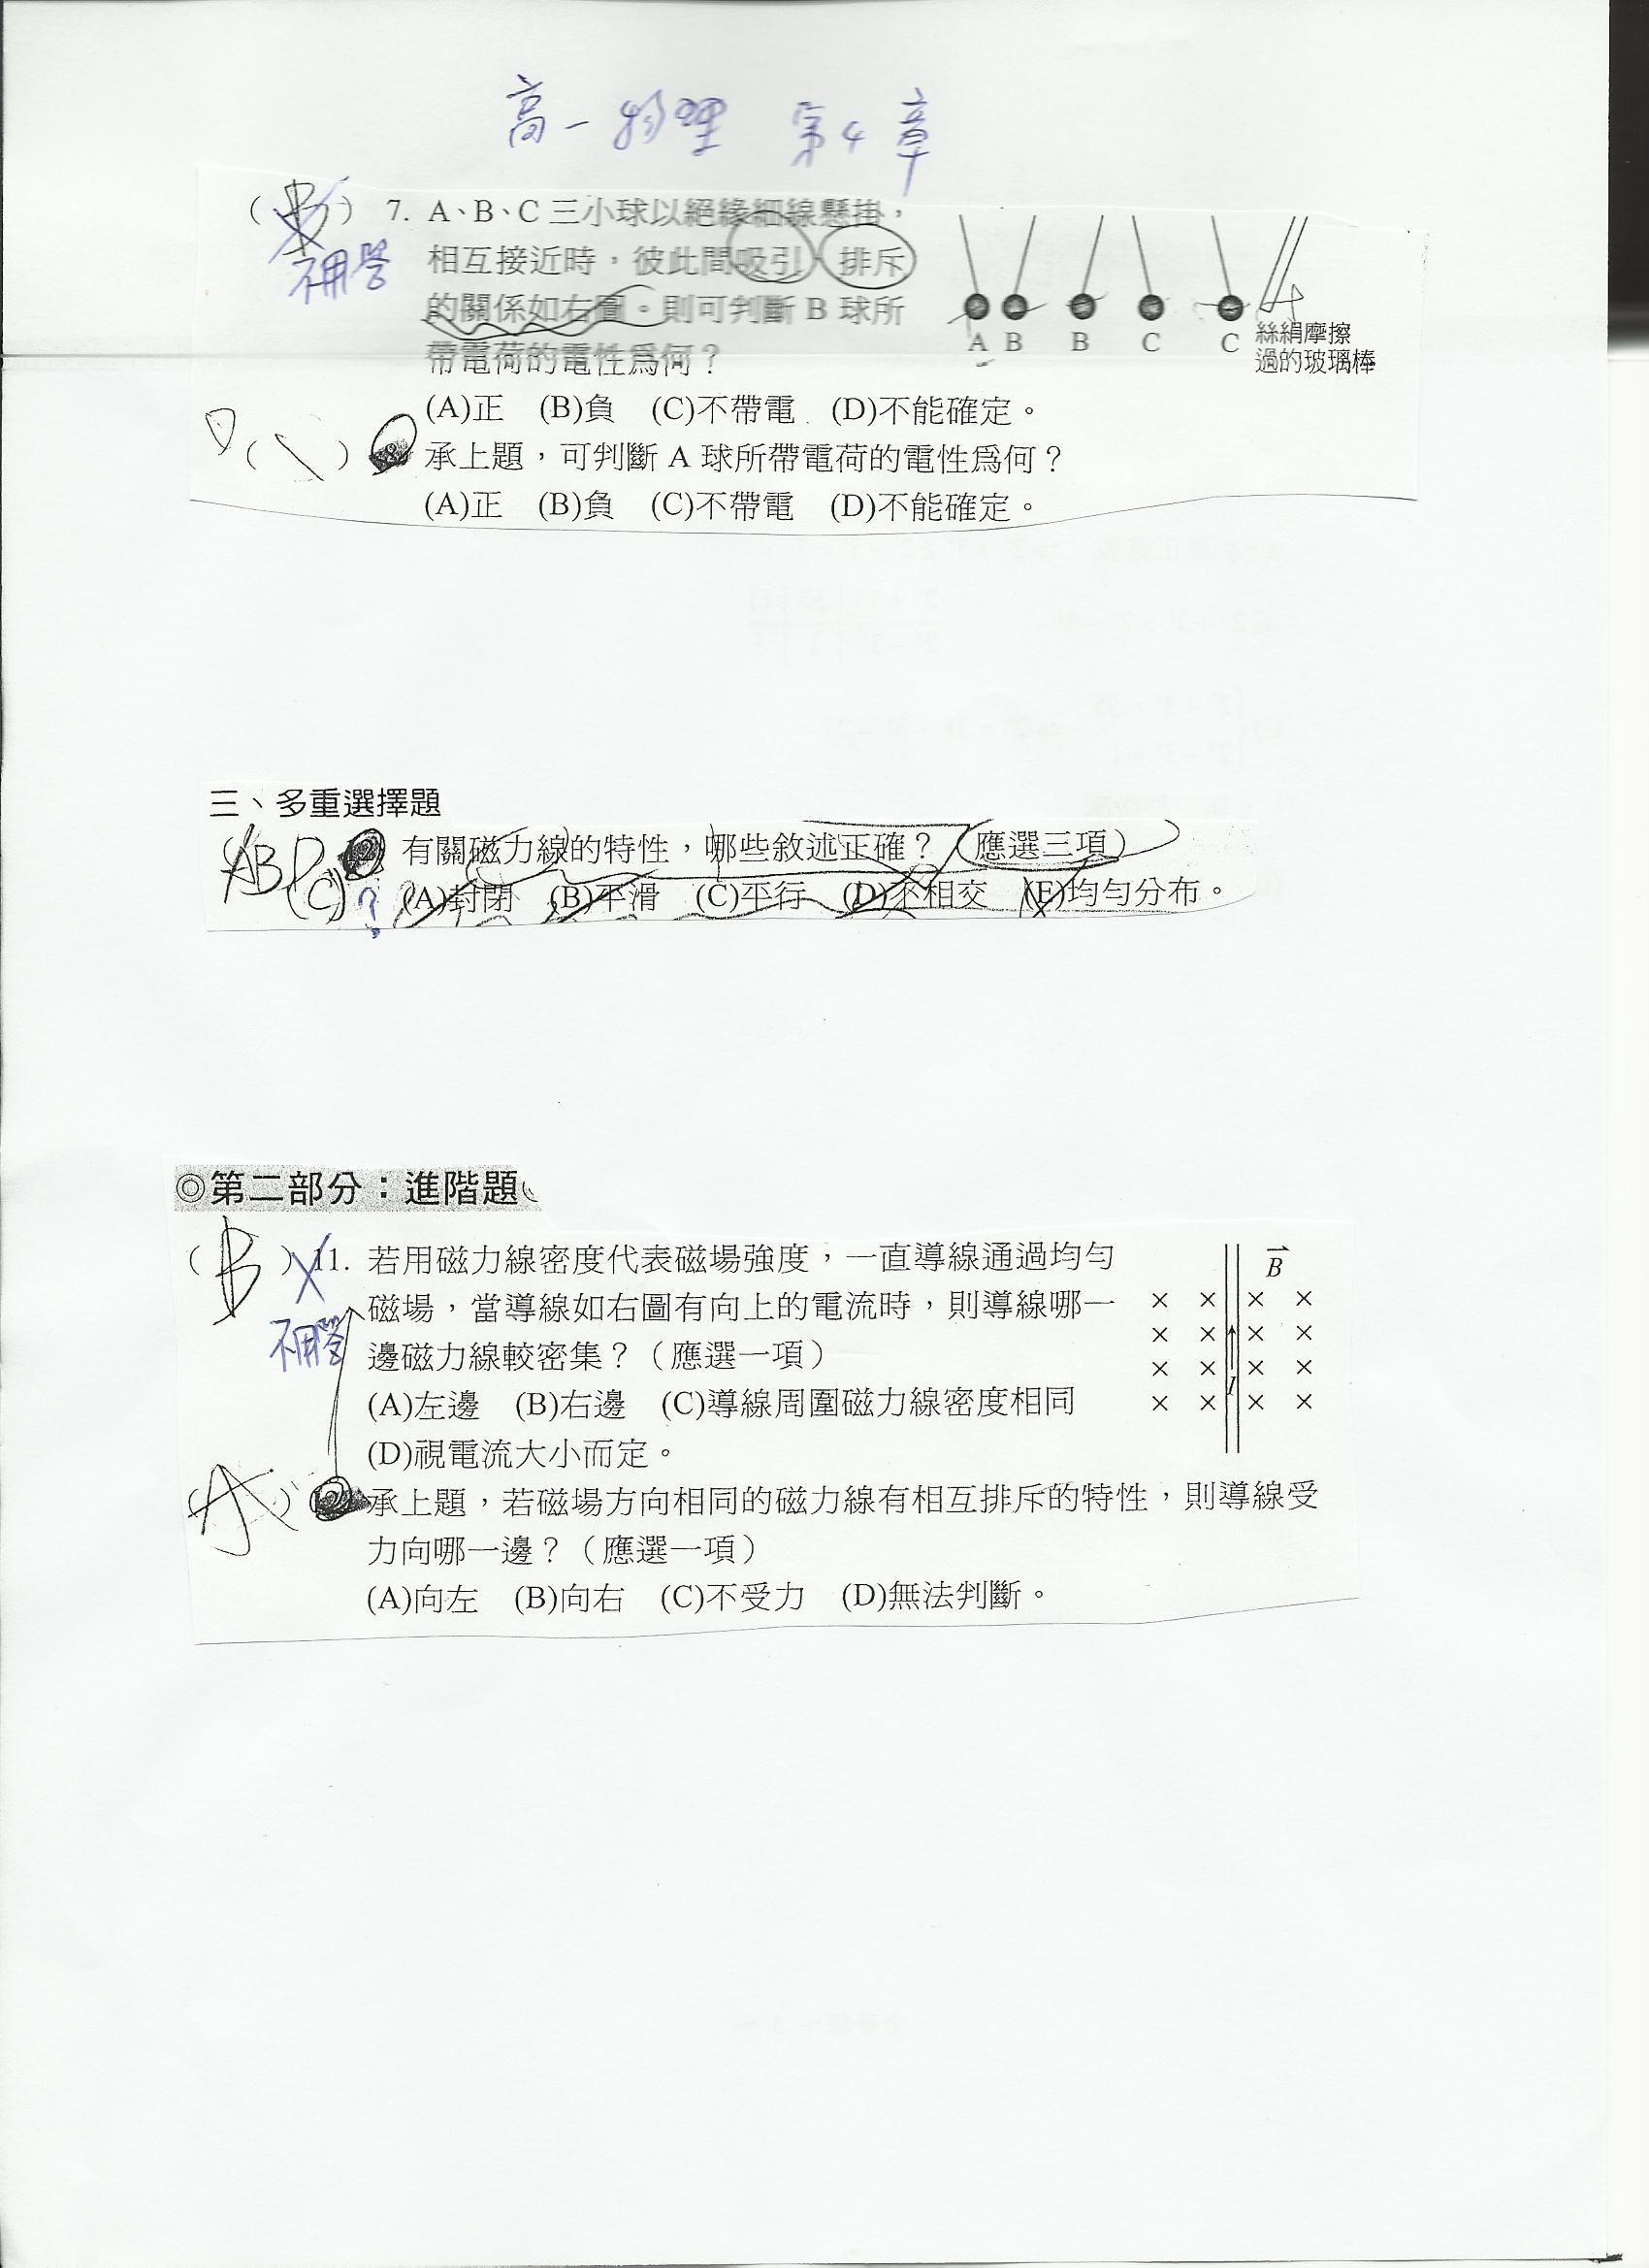 高一物理 第4章
(B) 7. A、B、C 三小球以絕緣細線懸掛，
不用答
相互接近時，彼此間吸引、排斥
的關係如右圖。則可判斷 B 球所
帶電荷的電性為何？
A B B C C
絲絹摩擦
過的玻璃棒
(A)正 (B)負 (C)不帶電 (D)不能確定。
D ( ) 承上題，可判斷 A 球所帶電荷的電性為何？
(A)正 (B)負 (C)不帶電 (D)不能確定。
三、多重選擇題
ABD 有關磁力線的特性，哪些敘述正確？（應選三項）
(C) ? (A)封閉 (B)平滑 (C)平行 (D)不相交 (E)均勻分布。
◎第二部分：進階題
(B) 11. 若用磁力線密度代表磁場強度，一直導線通過均勻
不用答
磁場，當導線如右圖有向上的電流時，則導線哪一
邊磁力線較密集？（應選一項）
(A)左邊 (B)右邊 (C)導線周圍磁力線密度相同
(D)視電流大小而定。
B
× × × ×
× × × ×
× × × ×
× × × ×
I
(A) 承上題，若磁場方向相同的磁力線有相互排斥的特性，則導線受
力向哪一邊？（應選一項）
(A)向左 (B)向右 (C)不受力 (D)無法判斷。